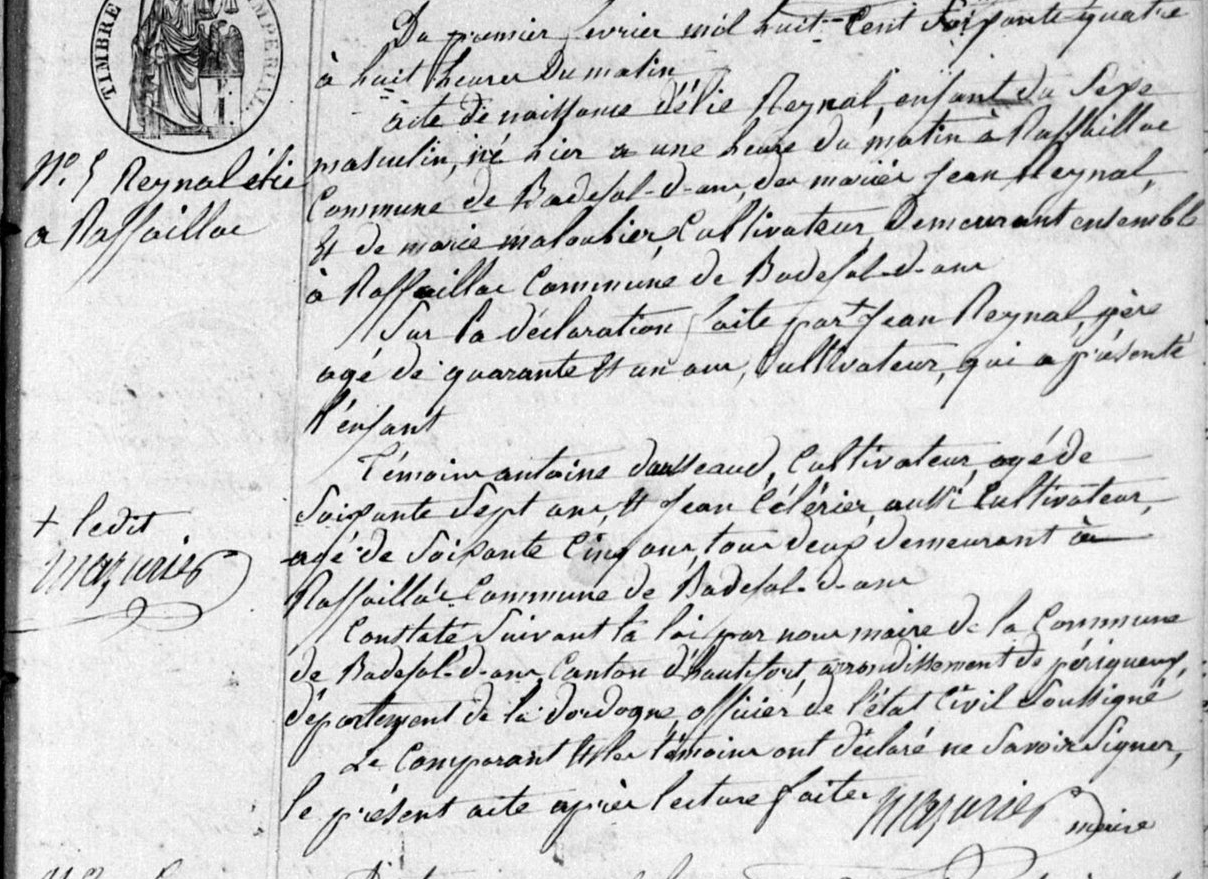 TIMBRE IMPERIAL
Du premier fevrier mil huit-Cent Soixante quatre
à huit heures Du matin
acte de naissance d'élie Reynal, enfant du Sexe
N°. 5 Reynal élie
à Raffaillac
masculin, né hier a une heure du matin à Raffaillac
Commune de Badefol-d-ans, des mariés Jean Reynal,
et de marie maloubier, Cultivateurs, Demeurant ensemble
à Raffaillac Commune de Badefol-d-ans
Sur la déclaration faite par + Jean Reynal, père
agé de quarante et un ans, Cultivateur, qui a présenté
l'enfant
Témoins antoine dausseaud, Cultivateur, agé de
Soixante Sept ans, et Jean Célérier, aussi Cultivateur,
+ ledit
mazurier
agé de Soixante Cinq ans, tous deux demeurant à
Raffaillac Commune de Badefol-d-ans
Constaté Suivant la loi par nous maire de la Commune
de Badefol-d-ans Canton d'hautefort, arrondissement de périgueux,
département de la dordogne, officier de l'état Civil Soussigné
Le Comparant et les témoins ont déclaré ne Savoir Signer,
le présent acte après lecture faite
mazurier maire